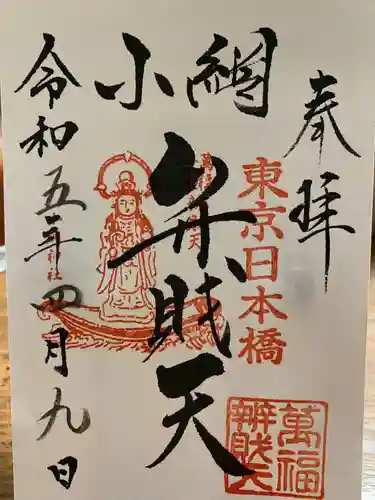 奉拝
東京日本橋
小網
弁財天
萬福
辨財天
令和五年四月九日
神社